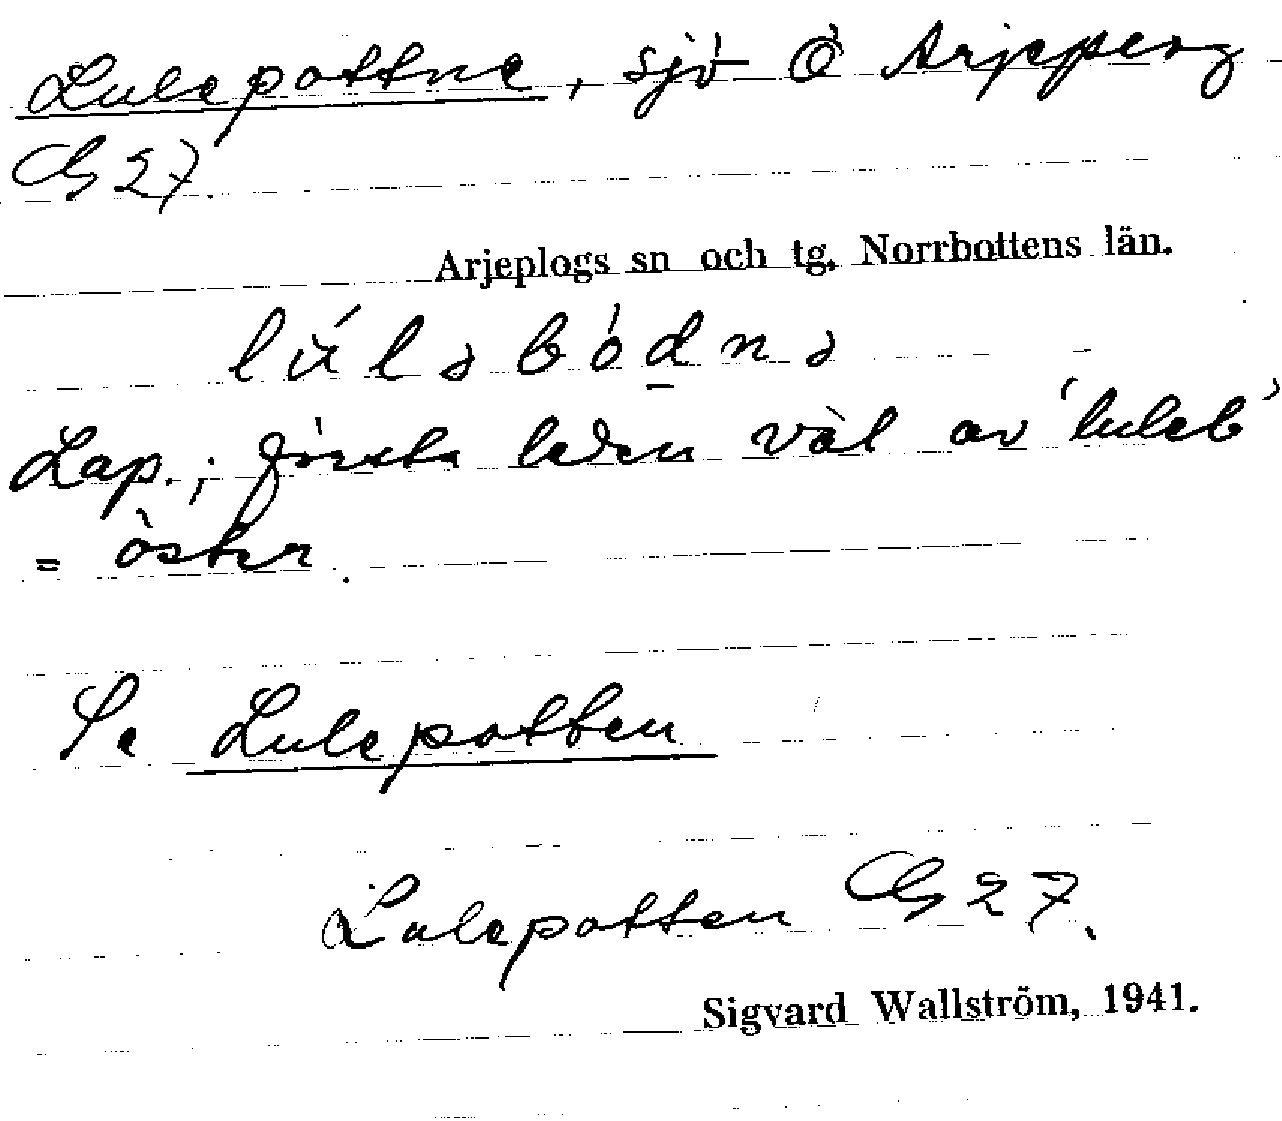 Lulepottne, sjö Ö Arjepl­ång
G 27.
Arjeplogs sn och tg. Norrbottens län.
lúləbódnə
Lap.; första leden väl av 'luleb'
= öster.
Se Lulepotten
Lulepotten G 27.
Sigvard Wallström, 1941.